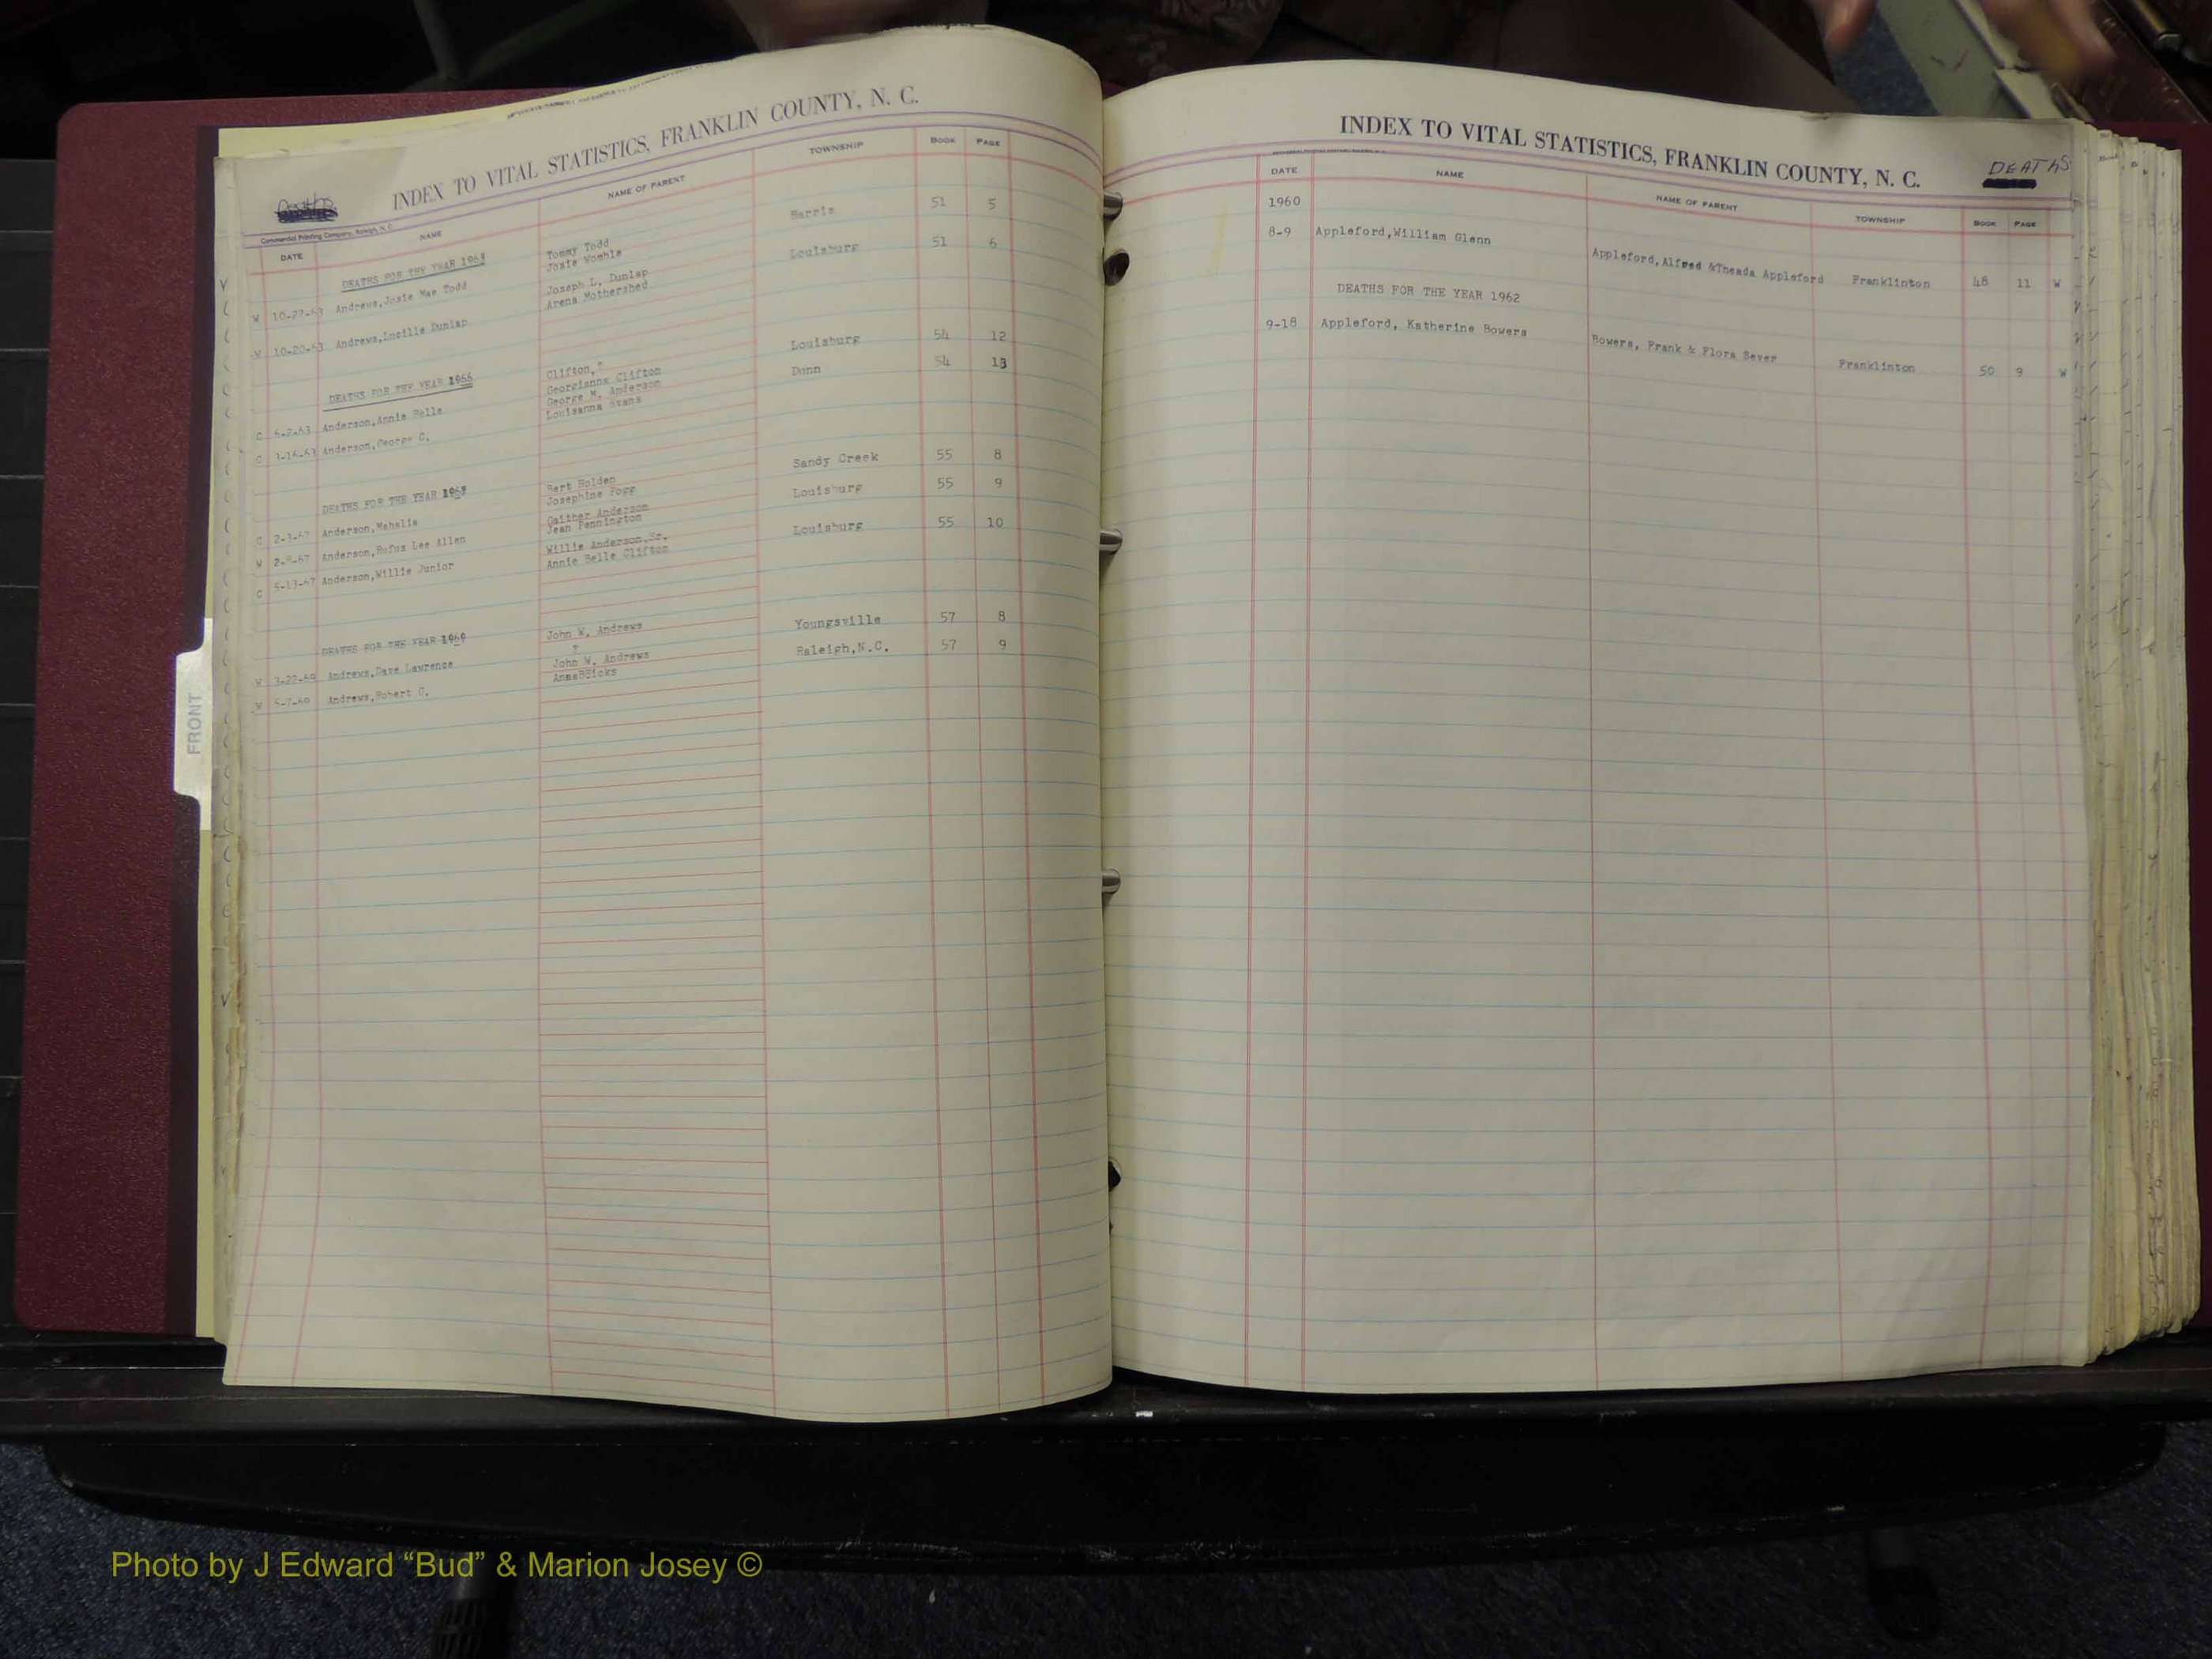 INDEX TO VITAL STATISTICS, FRANKLIN COUNTY, N. C.
Deaths
Commercial Printing Company, Raleigh, N. C.
DATE NAME NAME OF PARENT TOWNSHIP BOOK PAGE
DEATHS FOR THE YEAR 1963
W 10-27-63 Andrews,Josie Mae Todd Tommy Todd Harris 51 5
Josie Womble
W 10-20-63 Andrews,Lucille Dunlap Joseph L. Dunlap Louisburg 51 6
Arena Mothershed
DEATHS FOR THE YEAR 1966
C Anderson,Annie Belle Clifton,? Louisburg 54 12
Georgianna Clifton
C Anderson,George C. George W. Anderson Dunn 54 13
Louisanna Evans
DEATHS FOR THE YEAR
C 2-3-67 Anderson,Mahalia Bert Holden Sandy Creek 55 8
Josephine Fogg
W 2-8-67 Anderson,Rufus Lee Allen Gaither Anderson Louisburg 55 9
Jean Pennington
C 5-13-67 Anderson,Willie Junior Willie Anderson,Sr. Louisburg 55 10
Annie Belle Clifton
DEATHS FOR THE YEAR 1969
W 3-22-69 Andrews,Dave Lawrence John W. Andrews Youngsville 57 8
?
W 5-7-69 Andrews,Robert G. John W. Andrews Raleigh,N.C. 57 9
FRONT
INDEX TO VITAL STATISTICS, FRANKLIN COUNTY, N. C.
DEATHS
DATE NAME NAME OF PARENT TOWNSHIP BOOK PAGE
1960
8-9 Appleford,William Glenn Appleford,Alfred &Theada Appleford Franklinton 48 11 W
DEATHS FOR THE YEAR 1962
9-18 Appleford, Katherine Bowers Bowers, Frank & Flora Sever Franklinton 50 9 W
Photo by J Edward “Bud” & Marion Josey ©